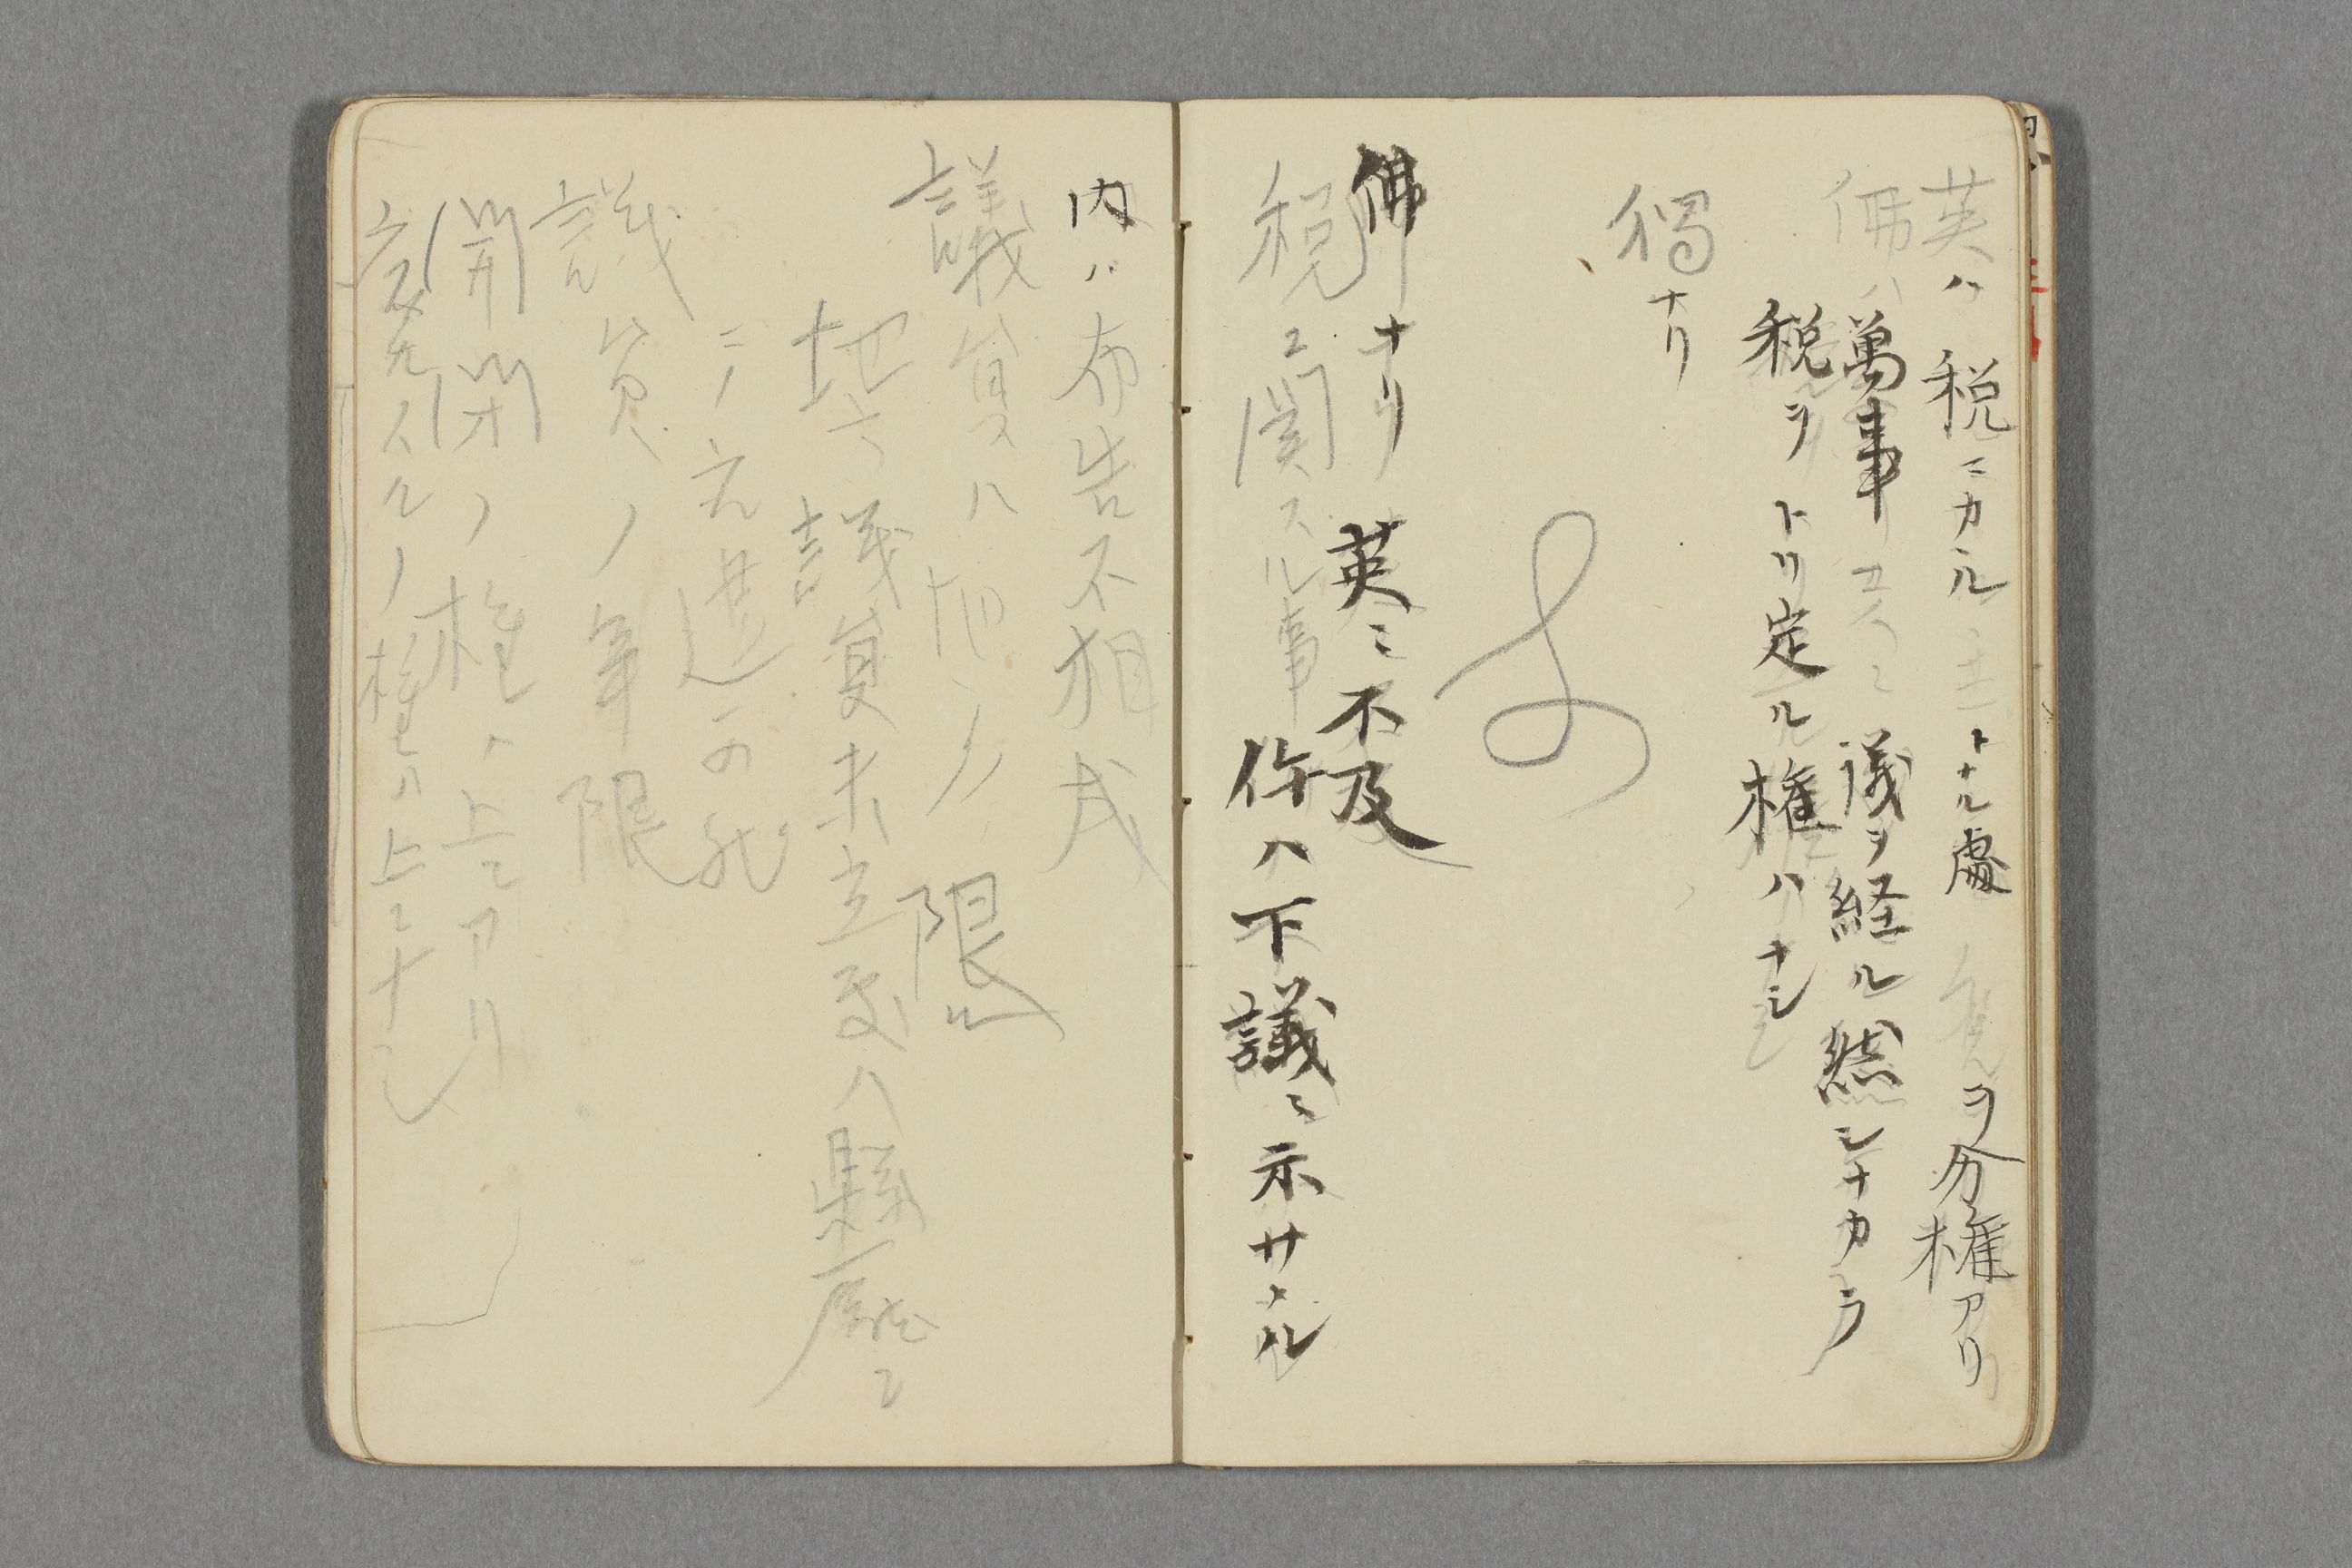 英ハ税ニカル主トナル處ヲ分権アリ
佛ハ萬事コヽニ議ヲ経ル然シナカラ
税ヲトリ定ル権ハナシ
獨ナリ
佛ナリ英ニ不及
税ニ関スル事件ハ下議ニ示サヽル
内ハ布告不相成
議員ハ限ル
地方議員未立處ハ縣廳ニ
テ之ヲ選可然
議員ノ年限
開閉ノ権ハ上ニアリ
議定スルノ権ハ上ニナシ